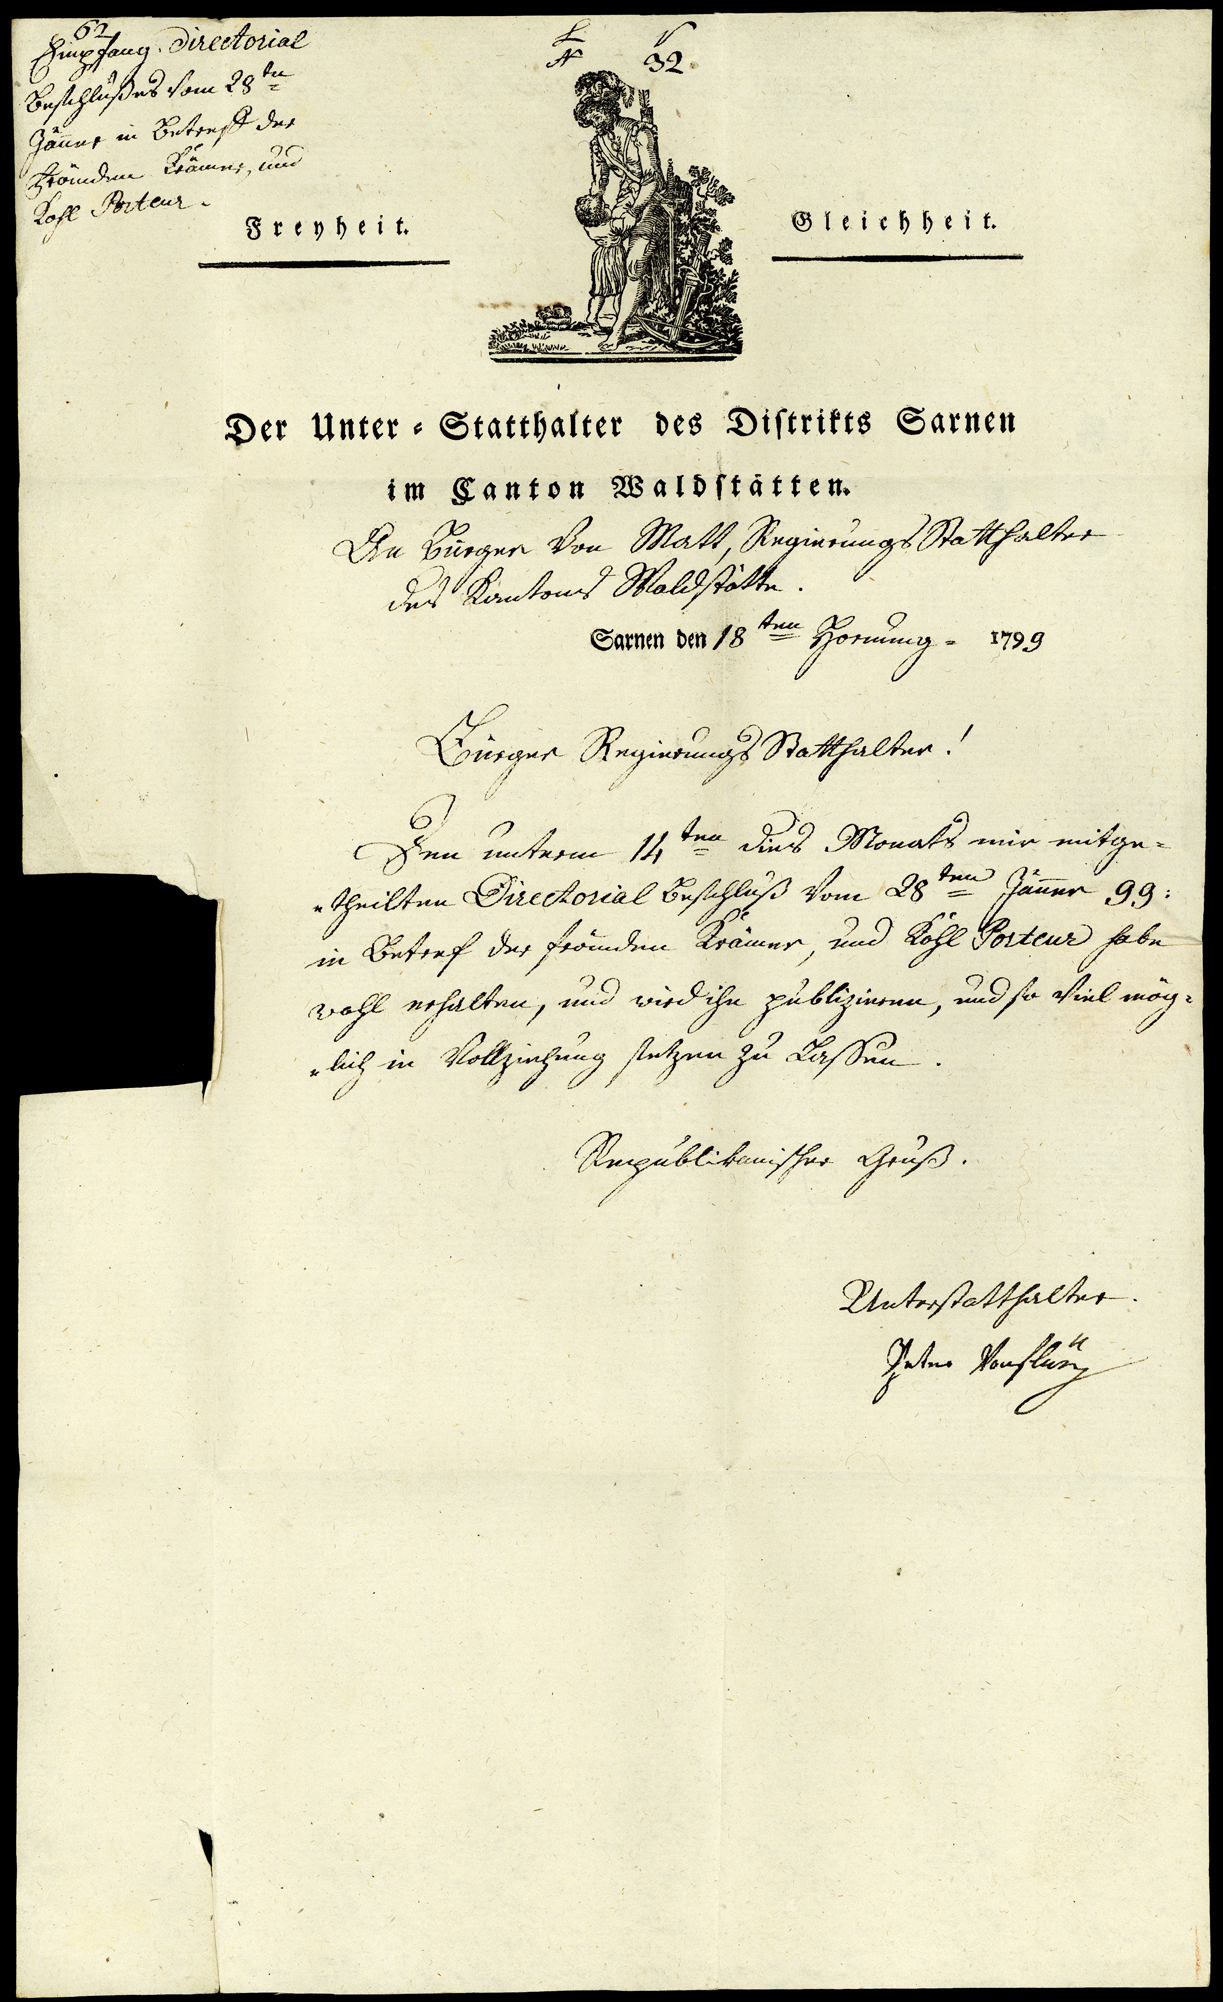 62
Empfang. Directorial
Beschlußes vom 28tn
Jänner in Betreff der
frömden Krämer, und
Kohl Porteur.
32
Freyheit.
Gleichheit.
Der Unter-Statthalter des Distrikts Sarnen
im Canton Waldstätten.
An Bürger Von Matt, Regierungs Statthalter
des Kantons Waldstätte.
Sarnen den 18ten Hornung - 1799
Bürger Regierungs Statthalter!
Den unterm 14ten dies Monats mir mitge=
=theilten Directorial Beschluß vom 28ten Jänner 99:
in Betref der frömden Krämer, und Kohl Porteur habe
wohl erhalten, und wird ihn publizieren, und so viel mög=
=lich in Vollziehung setzen zu Lassen.
Republikanischer Gruß.
Unterstatthalter.
Peter Vonflüe